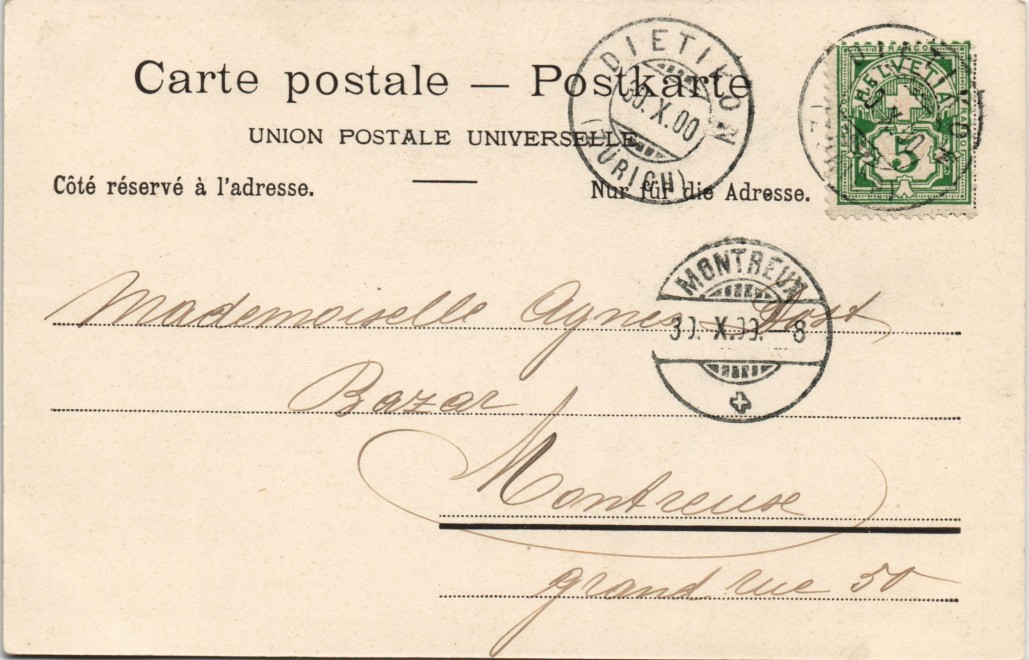 Carte postale — Postkarte
UNION POSTALE UNIVERSELLE
Côté réservé à l'adresse.
Nur für die Adresse.
DIETIKON
30.X.00
(ZÜRICH)
FRANCO
HELVETIA
5
DIETIKON
MONTREUX
30. X.00.–8
Mademoiselle Agnes
Bazar
Montreux
grand rue 50